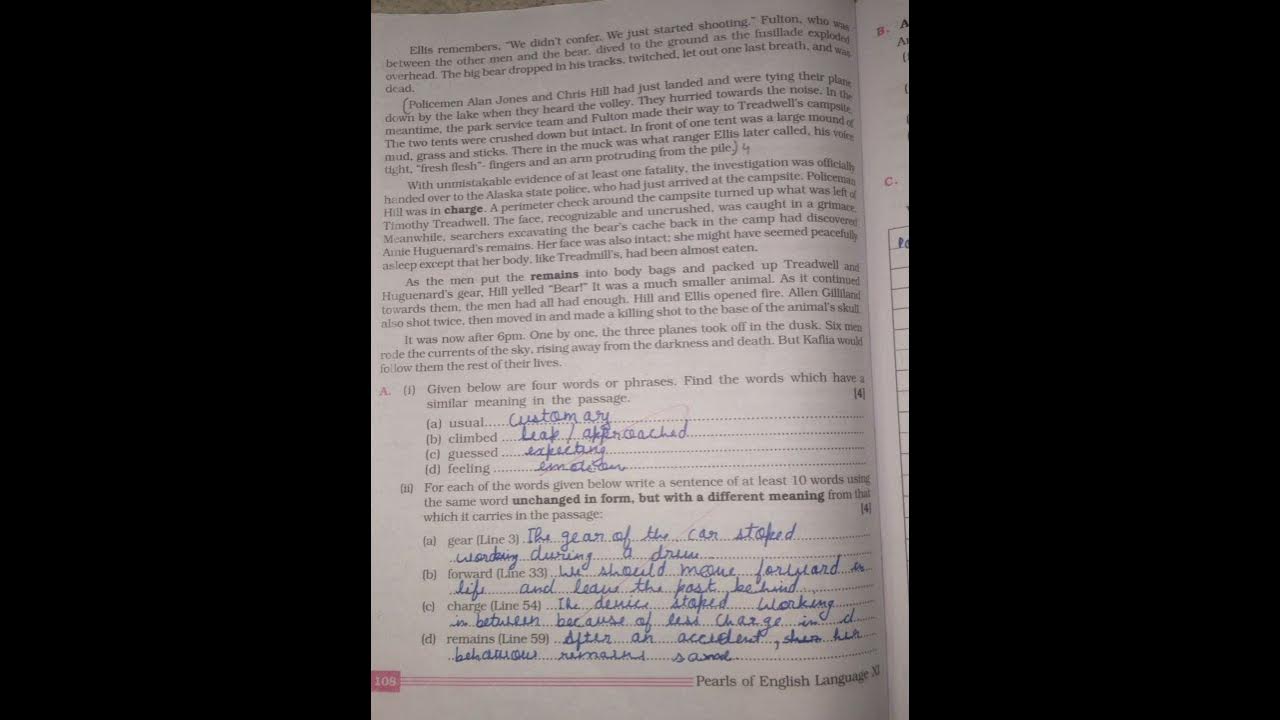 Ellis remembers, "We didn't confer. We just started shooting." Fulton, who was
between the other men and the bear, dived to the ground as the fusillade exploded
overhead. The big bear dropped in his tracks, twitched, let out one last breath, and was
dead.
(Policemen Alan Jones and Chris Hill had just landed and were tying their plane
down by the lake when they heard the volley. They hurried towards the noise. In the
meantime, the park service team and Fulton made their way to Treadwell's campsite.
The two tents were crushed down but intact. In front of one tent was a large mound of
mud, grass and sticks. There in the muck was what ranger Ellis later called, his voice
tight, "fresh flesh"- fingers and an arm protruding from the pile.) 4
With unmistakable evidence of at least one fatality, the investigation was officially
handed over to the Alaska state police, who had just arrived at the campsite. Policeman
Hill was in charge. A perimeter check around the campsite turned up what was left of
Timothy Treadwell. The face, recognizable and uncrushed, was caught in a grimace.
Meanwhile, searchers excavating the bear's cache back in the camp had discovered
Amie Huguenard's remains. Her face was also intact; she might have seemed peacefully
asleep except that her body, like Treadmill's, had been almost eaten.
As the men put the remains into body bags and packed up Treadwell and
Huguenard's gear, Hill yelled "Bear!" It was a much smaller animal. As it continued
towards them, the men had all had enough. Hill and Ellis opened fire. Allen Gilliland
also shot twice, then moved in and made a killing shot to the base of the animal's skull.
It was now after 6pm. One by one, the three planes took off in the dusk. Six men
rode the currents of the sky, rising away from the darkness and death. But Kaflia would
follow them the rest of their lives.
A. (i) Given below are four words or phrases. Find the words which have a
similar meaning in the passage. [4]
(a) usual customary
(b) climbed leap / approached
(c) guessed expecting
(d) feeling emotion
(ii) For each of the words given below write a sentence of at least 10 words using
the same word unchanged in form, but with a different meaning from that
which it carries in the passage: [4]
(a) gear (Line 3) The gear of the car stoped
working during a drive
(b) forward (Line 33) We should move forward in
life and leave the past behind.
(c) charge (Line 54) The device stoped working
in between because of less charge in
(d) remains (Line 59) After an accident, her
behaviour remains same
108
Pearls of English Language XI
B.
C.